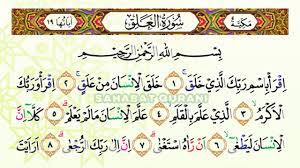 مكية سورة العلق آياتها ١٩
بِسْمِ اللَّهِ الرَّحْمَٰنِ الرَّحِيمِ
اقْرَأْ بِاسْمِ رَبِّكَ الَّذِي خَلَقَ ١ خَلَقَ الْإِنْسَانَ مِنْ عَلَقٍ ٢ اقْرَأْ وَرَبُّكَ
الْأَكْرَمُ ٣ الَّذِي عَلَّمَ بِالْقَلَمِ ٤ عَلَّمَ الْإِنْسَانَ مَا لَمْ يَعْلَمْ ٥ كَلَّا إِنَّ
الْإِنْسَانَ لَيَطْغَىٰ ٦ أَنْ رَآهُ اسْتَغْنَىٰ ٧ إِنَّ إِلَىٰ رَبِّكَ الرُّجْعَىٰ ٨ أَرَأَيْتَ